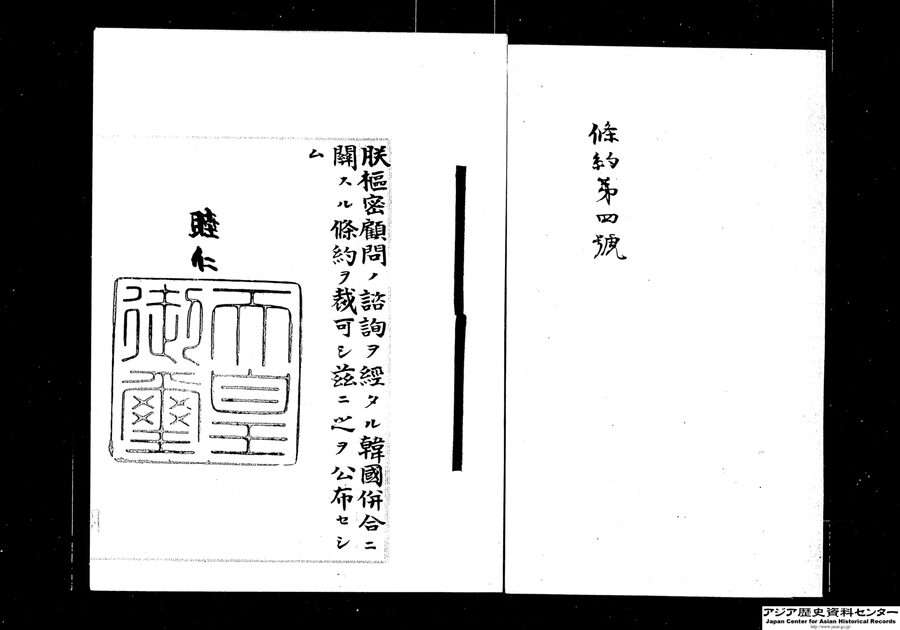 條約第四號
朕樞密顧問ノ諮詢ヲ經タル韓國併合ニ
關スル條約ヲ裁可シ茲ニ之ヲ公布セシ
ム
睦仁
天皇
御璽
アジア歴史資料センター
Japan Center for Asian Historical Records
http://www.jacar.go.jp/